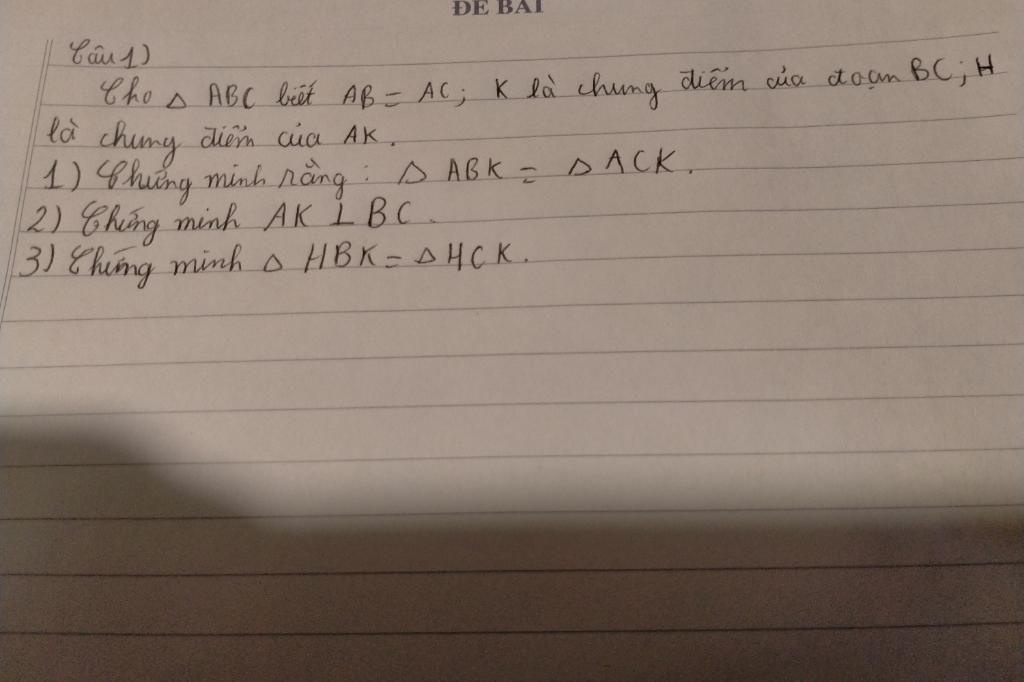 ĐỀ BÀI
Câu 1)
Cho △ ABC biết AB = AC; K là chung điểm của đoạn BC; H
là chung điểm của AK.
1) Chứng minh rằng: △ ABK = △ ACK.
2) Chứng minh AK ⊥ BC.
3) Chứng minh △ HBK = △ HCK.